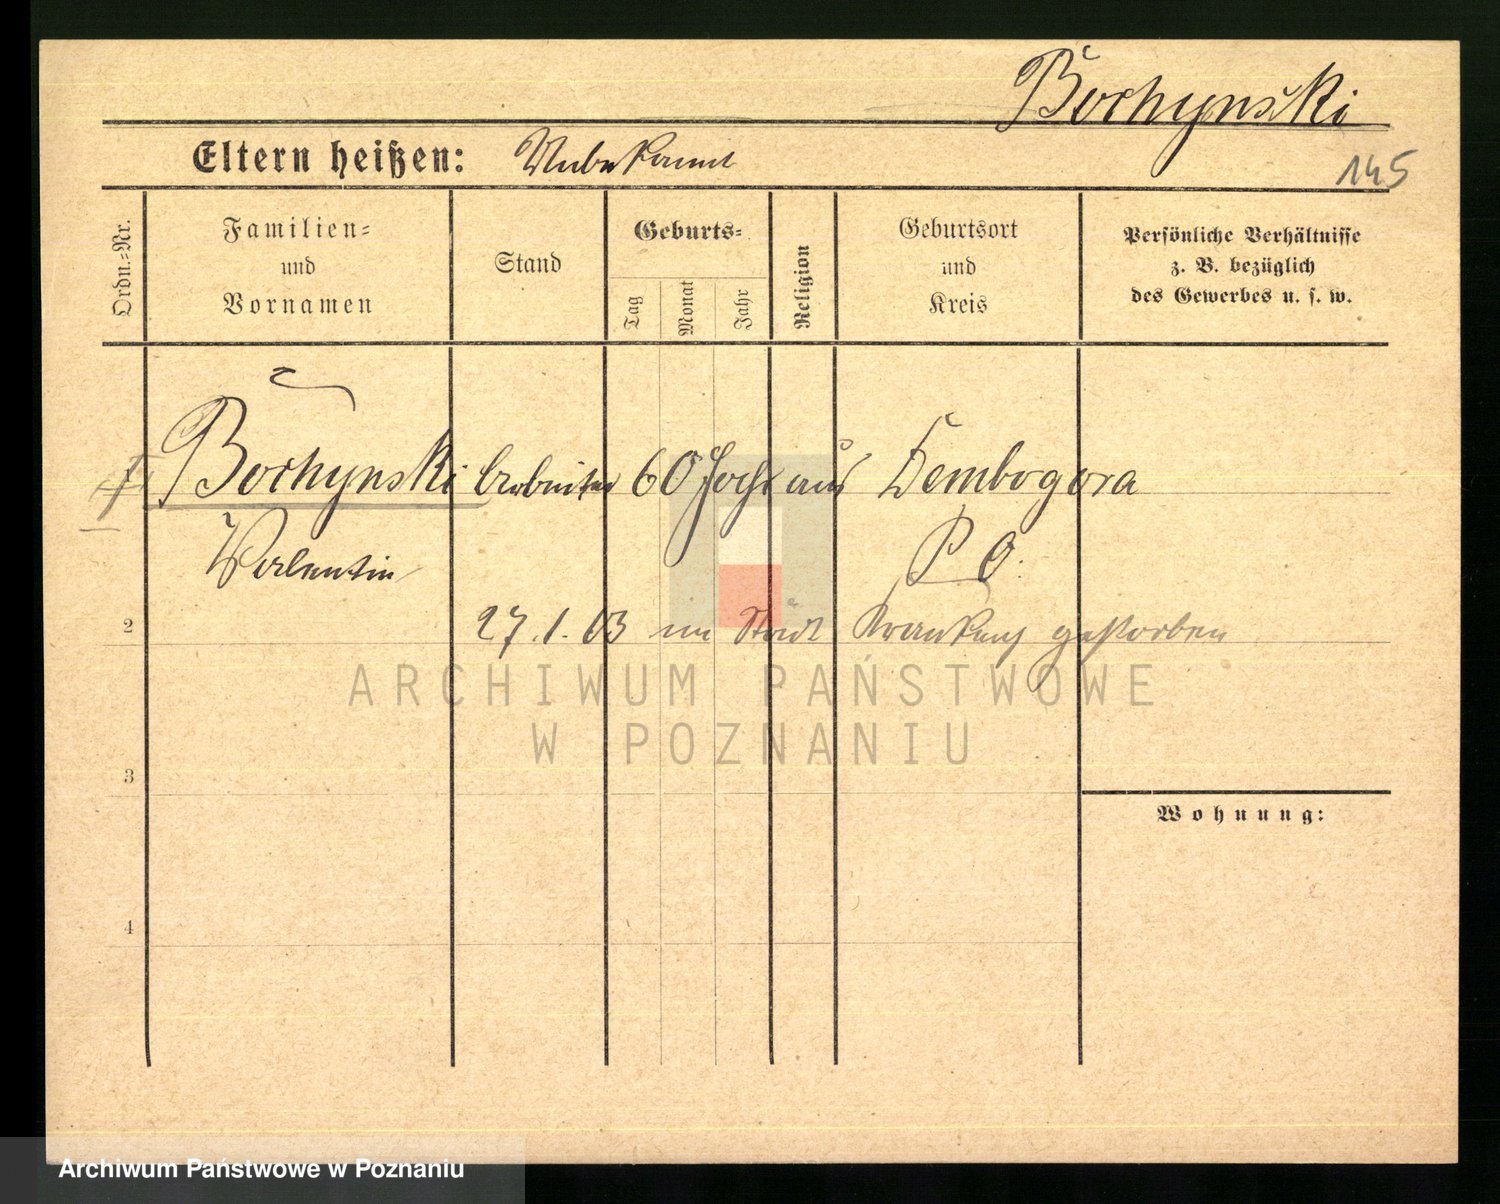 Bochynski
Eltern heißen: Unbekannt
145
Ordn.-Nr.
Familien- und Vornamen
Stand
Geburts-
Tag
Monat
Jahr
Religion
Geburtsort und Kreis
Persönliche Verhältnisse z. B. bezüglich des Gewerbes u. s. w.
Bochynski Arbeiter 60 Jahr aus Dembogora
Valentin P. O.
2
27.1.03 im Städt Krankenh gestorben
ARCHIWUM PAŃSTWOWE
W POZNANIU
3
Wohnung:
4
Archiwum Państwowe w Poznaniu